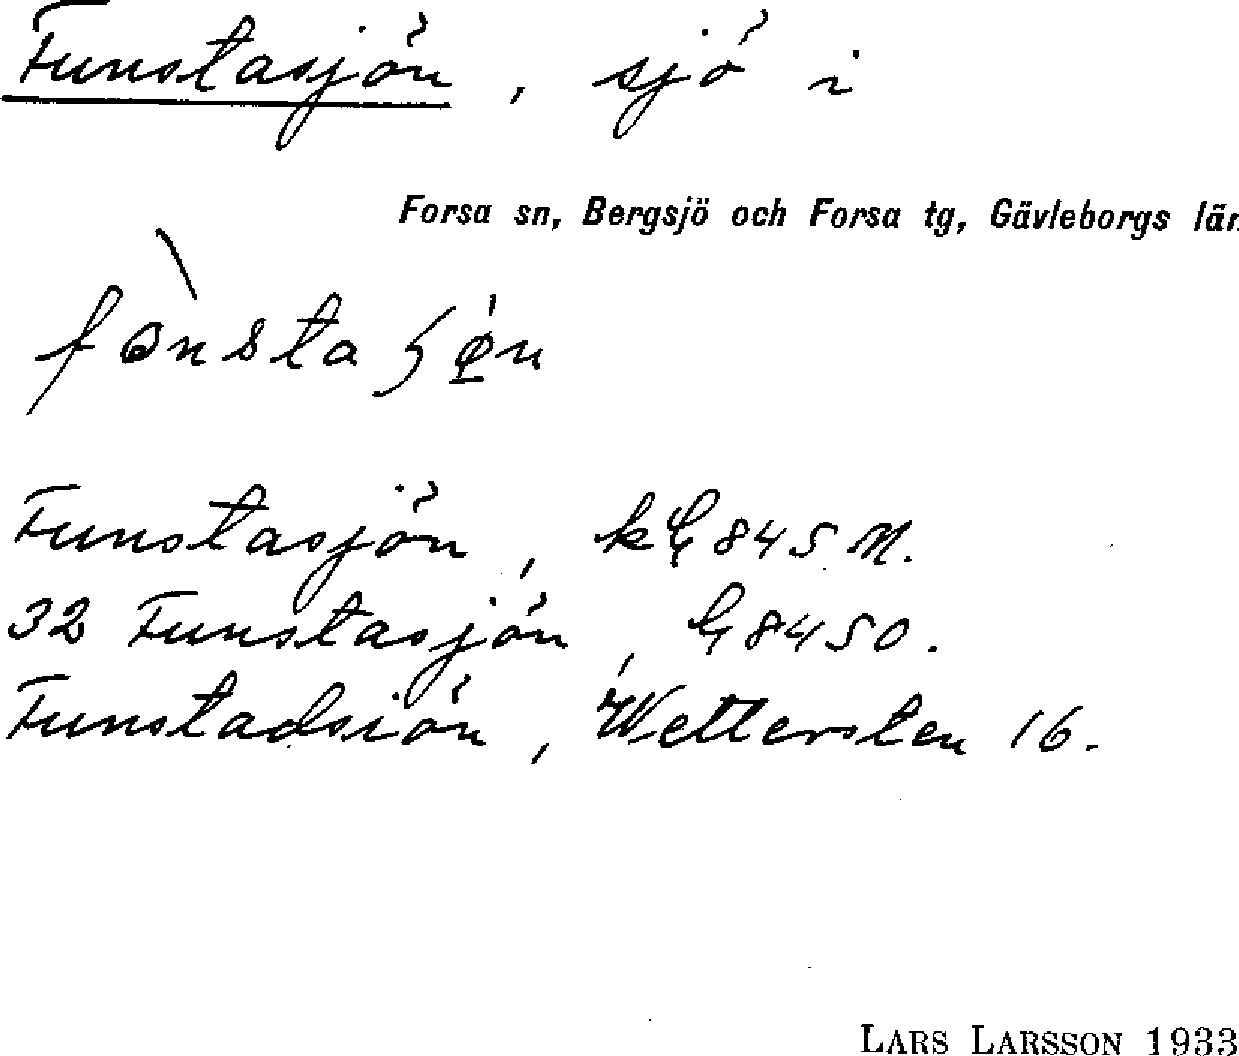 Funstasjön, sjö i
Forsa sn, Bergsjö och Forsa tg, Gävleborgs län
Funstasjön, 845 N.
32 Funstasjön, 8450.
Funstadsiön, Wettersten 16.
LARS LARSSON 1933